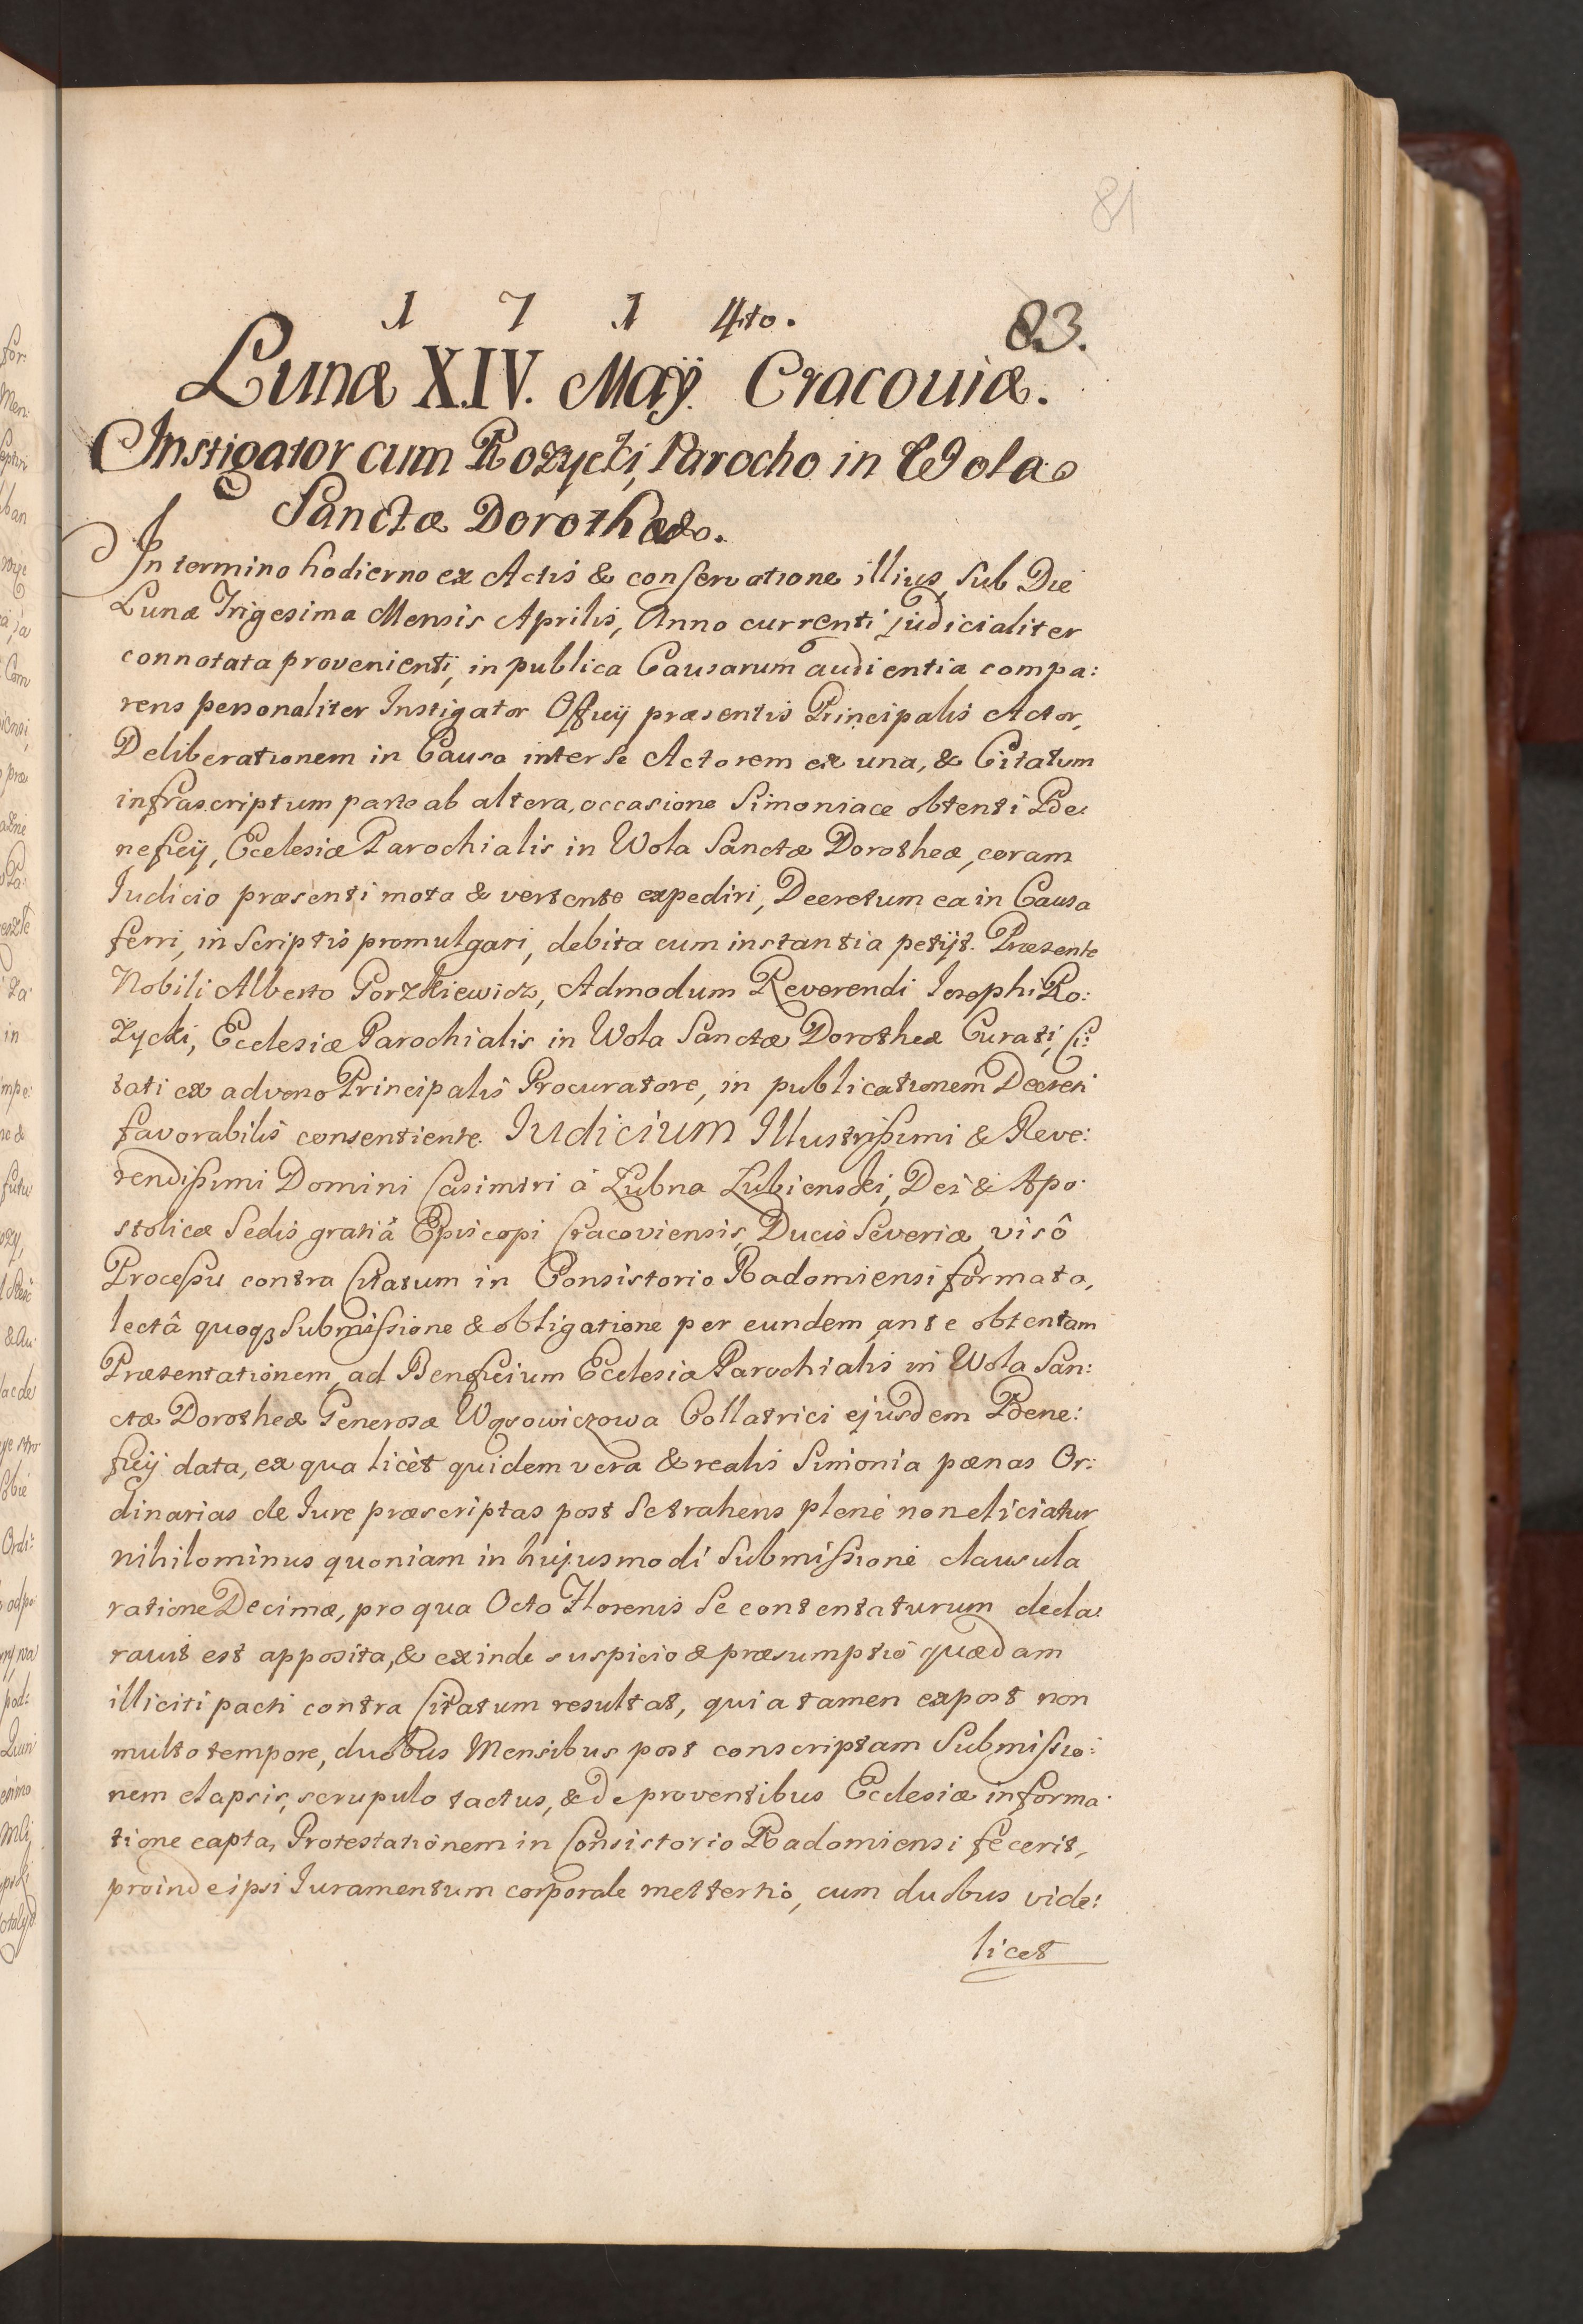 81
1 7 1 4to.
83.
Lunæ XIV. Maÿ. Cracouiæ.
Instigator cum Rozycki, Parocho in Wola
Sanctæ Dorotheæ.
In termino hodierno ex Actis & conservatione illius, sub Die
Lunæ Trigesima Mensis Aprilis, Anno currenti judicialiter
connotata provenienti, in publica Causarum audientia compa:
rens personaliter Instigator Officij præsentis Principalis Actor,
Deliberationem in Causa inter se Actorem ex una, & Citatum
infrascriptum parte ab altera, occasione Simoniace obtenti Be:
neficij, Ecclesiæ Parochialis in Wola Sanctæ Dorotheæ, coram
Iudicio præsenti mota & vertente expediri, Decretum ea in Causa
ferri, in scriptis promulgari, debita cum instantia petijt. Præsente
Nobili Alberto Gorzkiewicz, Admodum Reverendi Iosephi Ro:
zycki, Ecclesiæ Parochialis in Wola Sanctæ Dorotheæ Curati, Ci:
tati ex adverso Principalis Procuratore, in publicationem Decreti
favorabilis consentiente. Iudicium Illustrissimi & Reve:
rendissimi Domini Casimiri à Łubna Łubienski, Dei & Apo:
stolicæ Sedis gratiâ Episcopi Cracoviensis, Ducis Severiæ, visô
Processu contra Citatum in Consistorio Radomiensi formato,
lectâ quoqȝ Submissione & obligatione per eundem ante obtentam
Præsentationem, ad Beneficium Ecclesiæ Parochialis in Wola San:
ctæ Dorotheæ Generosæ Wąsowiczowa Collatrici ejusdem Bene:
ficij data, ex qua licèt quidem vera & realis Simonia pænas Or:
dinarias de Iure præscriptas post se trahens plenè non eliciatur,
nihilominus quoniam in hujusmodi Submissione clausula
ratione Decimæ, pro qua Octo Florenis se contentaturum decla:
ravit est apposita, & exinde suspicio & præsumptio quædam
illiciti pacti contra Citatum resultat, quia tamen expost non
multo tempore, duobus Mensibus post conscriptam Submissio:
nem elapsis, scrupulo tactus, & de proventibus Ecclesiæ informa:
tione capta, Protestationem in Consistorio Radomiensi fecerit,
proinde ipsi Iuramentum corporale mettertio, cum duobus vide:
licet